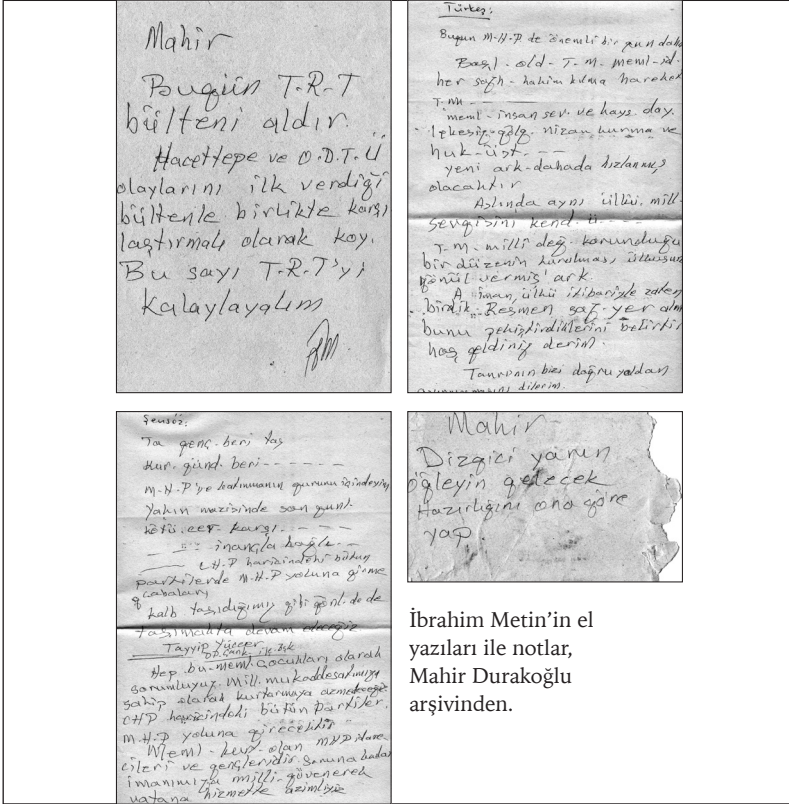 Mahir
Bugün T.R.T
bülteni aldır.
Hacettepe ve O.D.T.Ü
olaylarını ilk verdiği
bültenle birlikte karşı
laştırmalı olarak koy.
Bu sayı T.R.T'yi
kalaylayalım
Türkeş:
Bugün M-H-P de önemli bir gün daha
Başl - old - T-M- meml - id.
her safh - hakim kılma hareket
T-M-
meml - insan sev. ve hays. day.
lekesiz - gölg. nizan kurma ve
huk - üst.
yeni ark - dahada hızlanmış
olacaktır
Aslında aynı ülkü, mill-
sevgisini kend-ü
T-M- milli değ - korunduğu
bir düzenin kurulması ülküsüne
gönül vermiş ark.
A iman, ülkü itibariyle zaten
birdik. Resmen saf - yer alm
bunu pekiştirdiklerini belirtir
hoş geldiniz derim.
Tanrının bizi doğru yoldan
dilerim.
Şensöz:
Ta genç - beri taş
kur. günd. beri
M-H-P'ye katılmanın gururu içindeyim
Yakın mazisinde son günl.
kötü cer karşı.
inançla bağlı
C.H.P haricindeki bütün
partilerde M-H-P yoluna girme
çabaları
kalb taşıdığımız gibi gönl. de de
taşımakta devam edeceğiz
Tayyip Yüceer
Hep bu-meml-çocukları olarak
sorumluyuz. Mill. mukaddesatımıza
sahip olarak kurtarmaya azmedeceğiz
CHP haricindeki bütün partiler.
M-H-P yoluna girecektir
Meml - kurt - olan MHP idare
cileri ve gençleridir. Sonuna kadar
imanımıza milli - güvenerek
vatana hizmette azimliyiz
Mahir
Dizgici yarın
öğleyin gelecek
Hazırlığını ona göre
yap
İbrahim Metin'in el
yazıları ile notlar,
Mahir Durakoğlu
arşivinden.